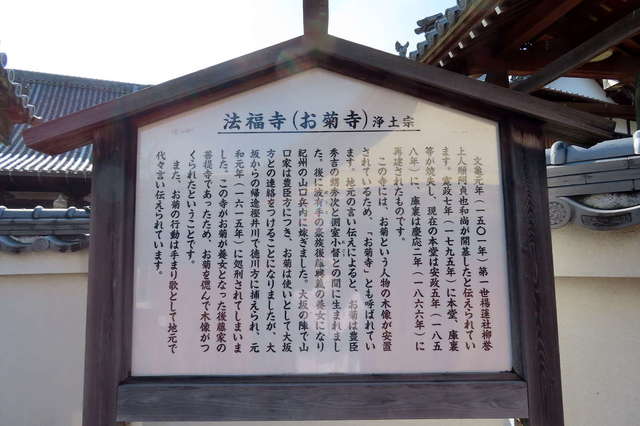 法福寺（お菊寺）浄土宗
文亀元年（一五〇一年）第一世楊蓮社柳誉
上人願故貞也和尚が開基したと伝えられてい
ます。寛政七年（一七九五年）に本堂、庫裏
等が焼失し、現在の本堂は安政五年（一八五
八年）に、庫裏は慶応二年（一八六六年）に
再建されたものです。
この寺には、お菊という人物の木像が安置
されているため、「お菊寺」とも呼ばれてい
ます。地元の言い伝えによると、お菊は豊臣
秀吉の甥秀次と側室小督との間に生まれまし
た。後に波有手の豪族後藤興義の養女になり
紀州の山口兵内に嫁ぎました。大坂の陣で山
口家は豊臣方につき、お菊は使いとして大坂
方との連絡をつけることになりましたが、大
坂からの帰途樫井川で徳川方に捕えられ、元
和元年（一六一五年）に処刑されてしまいま
した。この寺がお菊が養女となった後藤家の
菩提寺であったため、お菊を偲んで木像がつ
くられたということです。
また、お菊の行動は手まり歌として地元で
代々言い伝えられています。